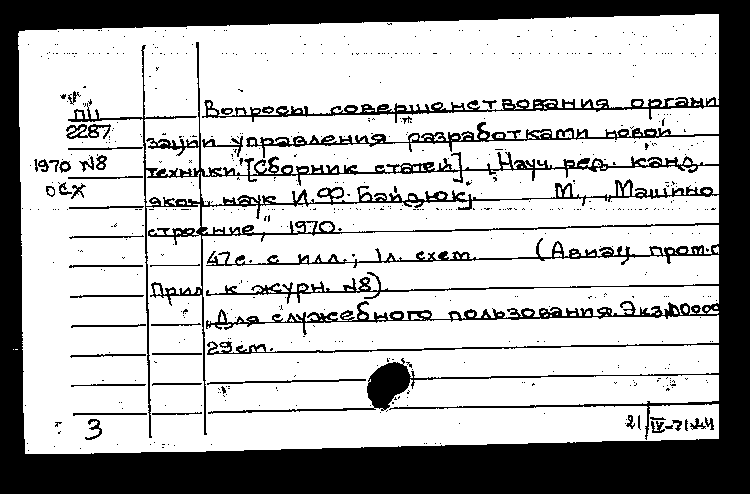 П11
2287
1970 N8
ОСХ
Вопросы совершенствования органи
зации управления разработками новой
техники. [Сборник статей]. Науч. ред. канд.
экон. наук И.Ф. Байдюк. М., „Машино
строение", 1970.
47с. с илл.; 1л. схем. (Авиац. пром-с
Прил. к журн. N8).
„Для служебного пользования. Экз.
29см.
3
21/IV-71